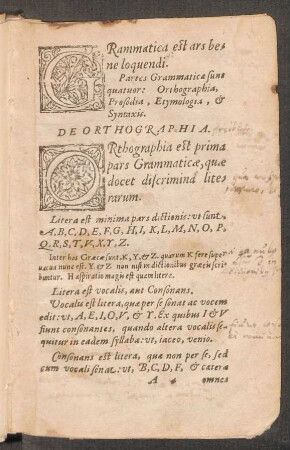 GRammatica est ars be-
ne loquendi.
Partes Grammaticæ sunt
quatuor: Orthographia,
Prosodia, Etymologia, &
Syntaxis.
DE ORTHOGRAPHIA.
ORthographia est prima
pars Grammaticæ, quæ
docet discrimina lite-
rarum.
Litera est minima pars dictionis: vt sunt
A, B, C, D, E, F, G, H, I, K, L, M, N, O, P,
Q, R, S, T, V, X, Y, Z.
Inter has Græcæ sunt. K, Y, & Z. quarum K fere super
nunc est. Y & Z non nisi in dictionibus græcis scri
buntur. H aspiratio magis est quem litera.
Litera est vocalis, aut Consonans.
Vocalis est litera, quæ per se sonat ac vocem
edit: vt, A, E, I, O, V, & Y. Ex quibus I & V
fiunt consonantes, quando altera vocalis se-
quitur in eadem syllaba: vt, iaceo, venio.
Consonans est litera, quæ non per se, sed
cum vocali sonat: vt, B, C, D, F, & cætera
A omnes